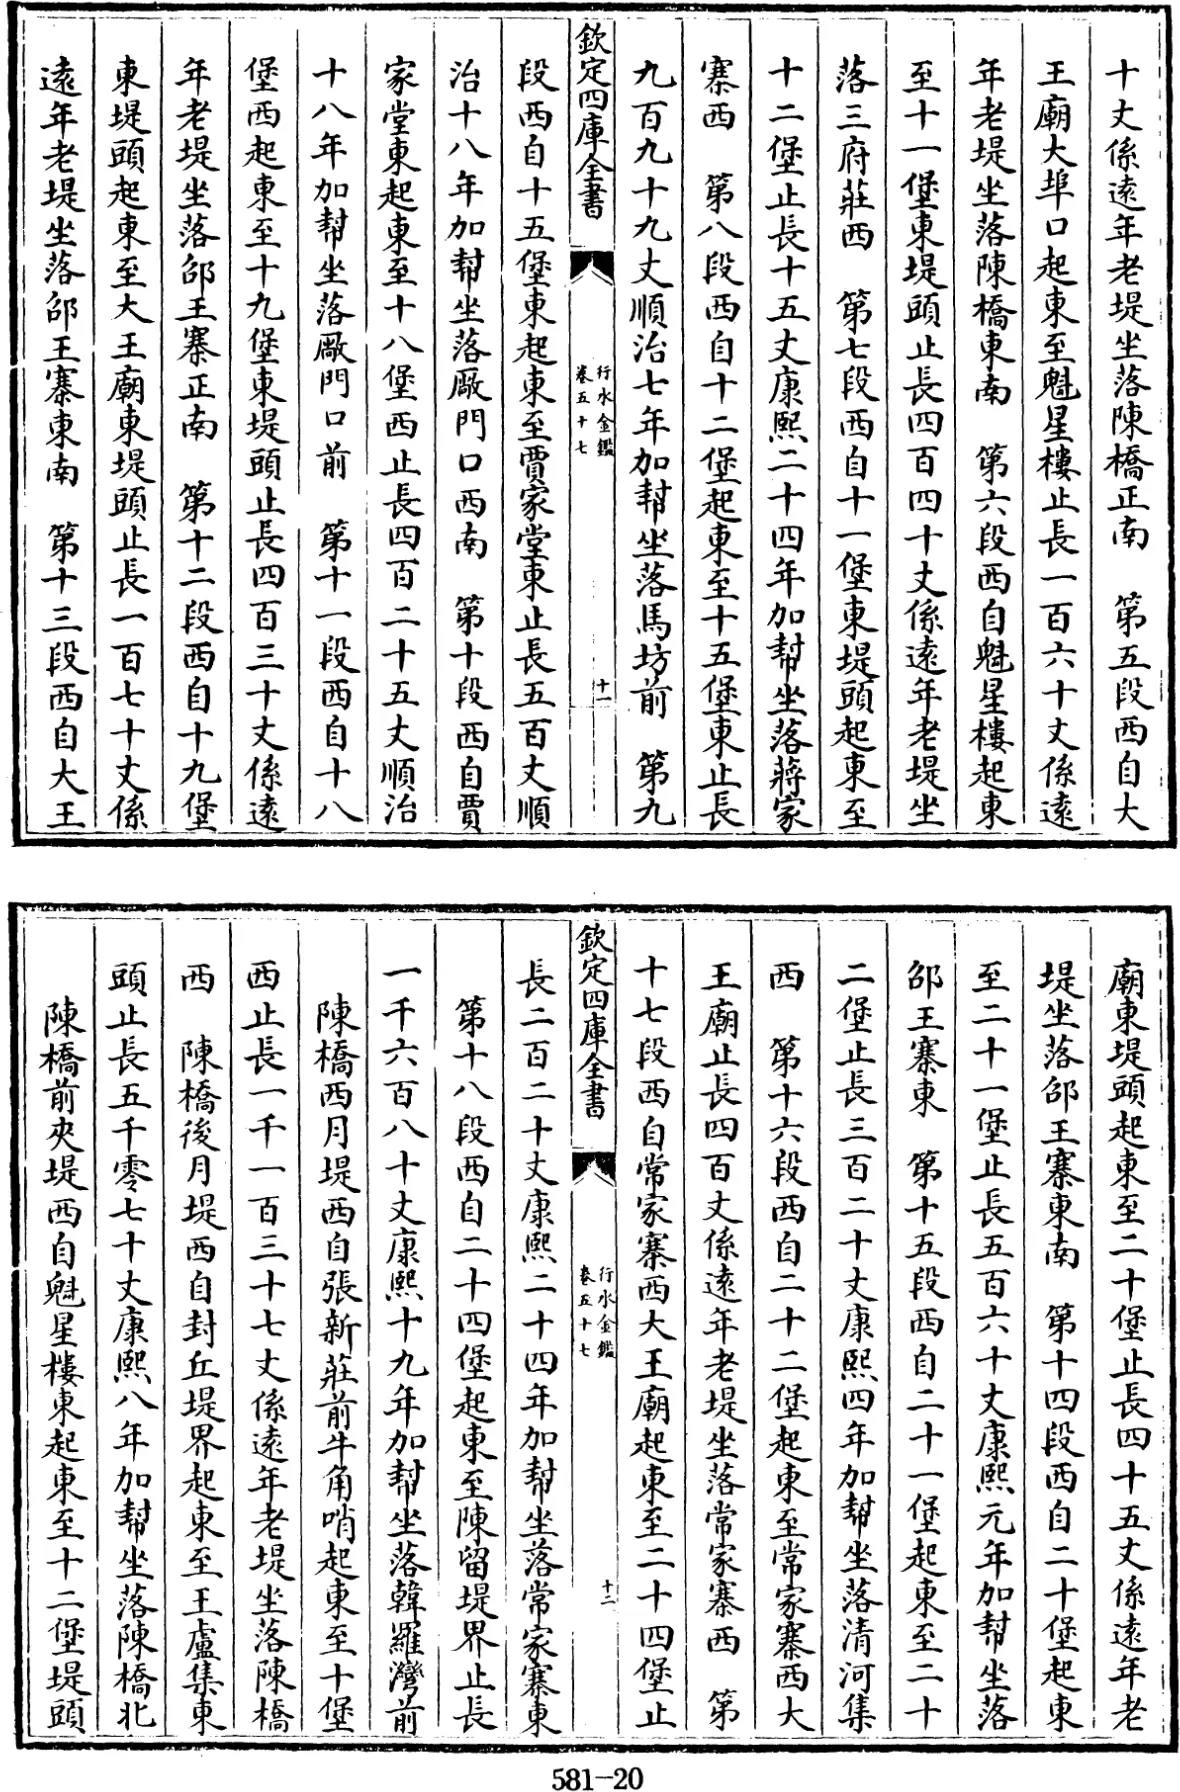 十丈係遠年老堤坐落陳橋正南　第五段西自大
王廟大埠口起東至魁星樓止長一百六十丈係遠
年老堤坐落陳橋東南　第六段西自魁星樓起東
至十一堡東堤頭止長四百四十丈係遠年老堤坐
落三府莊西　第七段西自十一堡東堤頭起東至
十二堡止長十五丈康熙二十四年加幇坐落蔣家
寨西　第八段西自十二堡起東至十五堡東止長
九百九十九丈順治七年加幇坐落馬坊前　第九
欽定四庫全書
行水金鑑
卷五十七
十一
段西自十五堡東起東至賈家堂東止長五百丈順
治十八年加幇坐落廠門口西南　第十段西自賈
家堂東起東至十八堡西止長四百二十五丈順治
十八年加幇坐落廠門口前　第十一段西自十八
堡西起東至十九堡東堤頭止長四百三十丈係遠
年老堤坐落邵王寨正南　第十二段西自十九堡
東堤頭起東至大王廟東堤頭止長一百七十丈係
遠年老堤坐落邵王寨東南　第十三段西自大王
廟東堤頭起東至二十堡止長四十五丈係遠年老
堤坐落邵王寨東南　第十四段西自二十堡起東
至二十一堡止長五百六十丈康熙元年加幇坐落
邵王寨東　第十五段西自二十一堡起東至二十
二堡止長三百二十丈康熙四年加幇坐落清河集
西　第十六段西自二十二堡起東至常家寨西大
王廟止長四百丈係遠年老堤坐落常家寨西　第
十七段西自常家寨西大王廟起東至二十四堡止
欽定四庫全書
行水金鑑
卷五十七
十二
長二百二十丈康熙二十四年加幇坐落常家寨東
第十八段西自二十四堡起東至陳留堤界止長
一千六百八十丈康熙十九年加幇坐落韓羅灣前
陳橋西月堤西自張新莊前牛角哨起東至十堡
西止長一千一百三十七丈係遠年老堤坐落陳橋
西　陳橋後月堤西自封丘堤界起東至王盧集東
頭止長五千零七十丈康熙八年加幇坐落陳橋北
陳橋前夾堤西自魁星樓東起東至十二堡堤頭
581-20